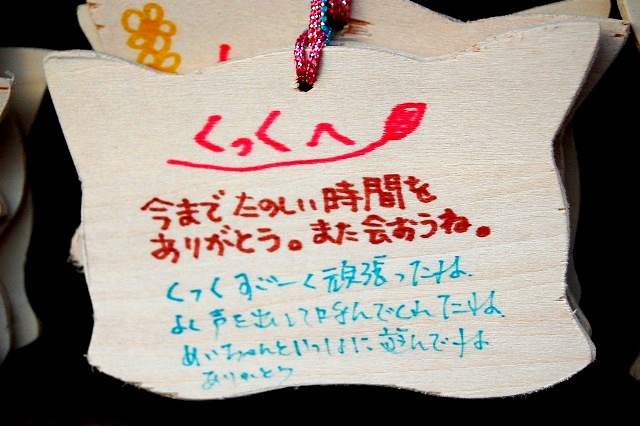 くっくへ
今までたのしい時間を
ありがとう。また会おうね。
くっくすごーく頑張ったね
よく声を出して呼んでくれてたね
めいちゃんといっしょに遊んですね
ありがとう